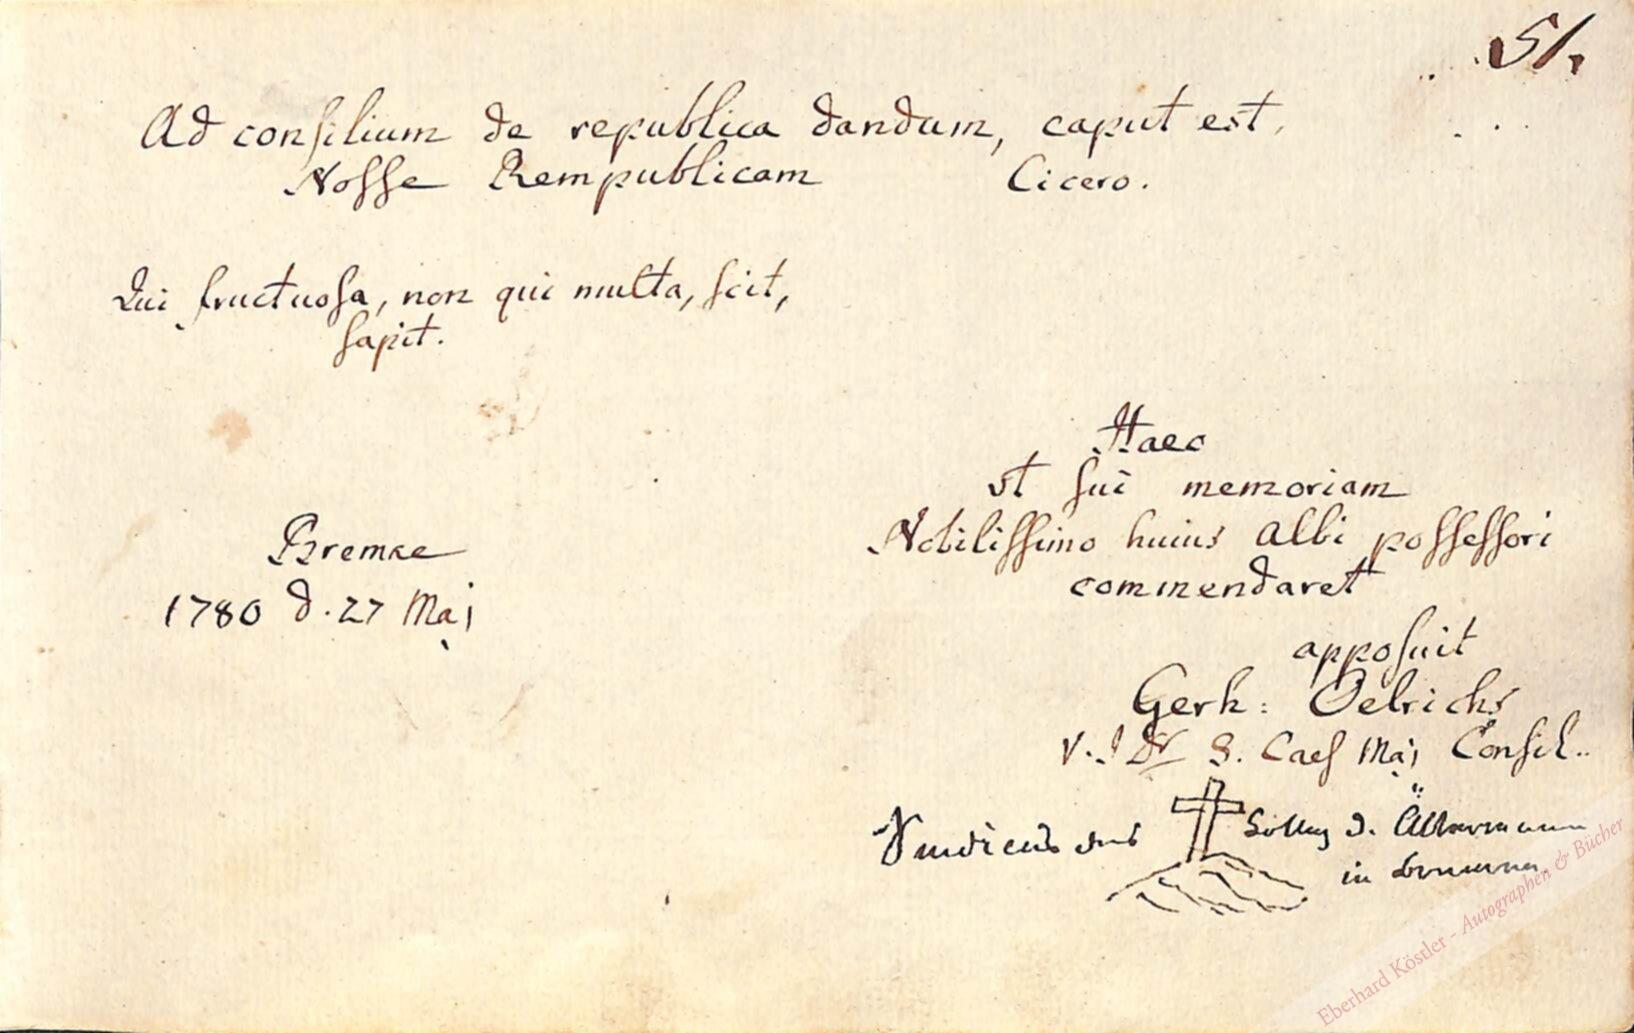 51.
Ad consilium de republica dandum, caput est,
Nosse Rempublicam Cicero.
Qui fructuosa, non qui multa, scit,
sapit.
Haec
vt sui memoriam
Nobilissimo huius Albi possessori
commendaret
Bremae
1780 d. 27 Maj
apposuit
Gerh: Oelrichs
V. J Dr S. Caes Maj Consil..
Syndicus des Colleg d. Älterman
in Bremen
Eberhard Köstler - Autographen & Bücher